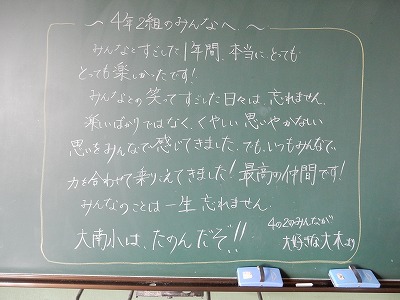 〜4年2組のみんなへ〜
みんなとすごした1年間、本当に、とっても
とっても楽しかったです!
みんなとの笑ってすごした日々は、忘れません。
楽しいばかりではなく、くやしい思いやかなしい
思いをみんなで感じてきました。でも、いつもみんなで、
力を合わせて乗りこえてきました!最高の仲間です!
みんなのことは一生忘れません。
大南小は、たのんだぞ!!
4の2のみんなが
大好きな大木より